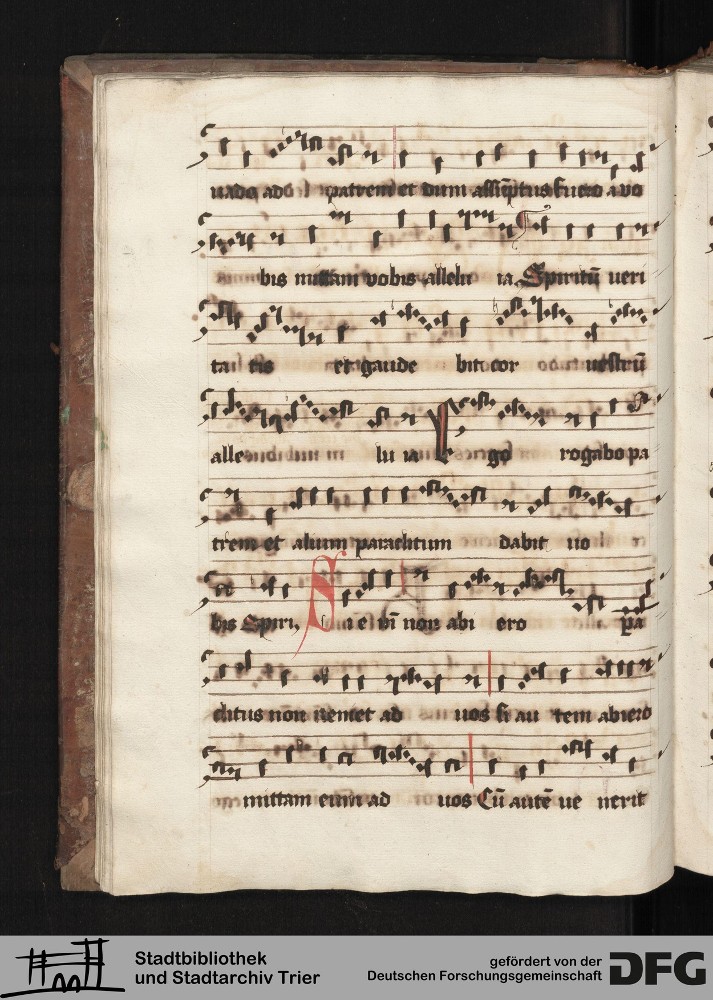 uado ad patrem et dum assūptus fuero a vo
bis mittam vobis allelu ia Spiritū ueri
ta tis et gaude bit cor uestrū
alle lu ia Ego rogabo pa
trem et alium paraclitum dabit uo
bis Spiri. Si e ni non abi ero pa
clitus non veniet ad uos si au tem abiero
mittam eum ad uos Cū autē ue nerit
Stadtbibliothek
und Stadtarchiv Trier
gefördert von der
Deutschen Forschungsgemeinschaft
DFG